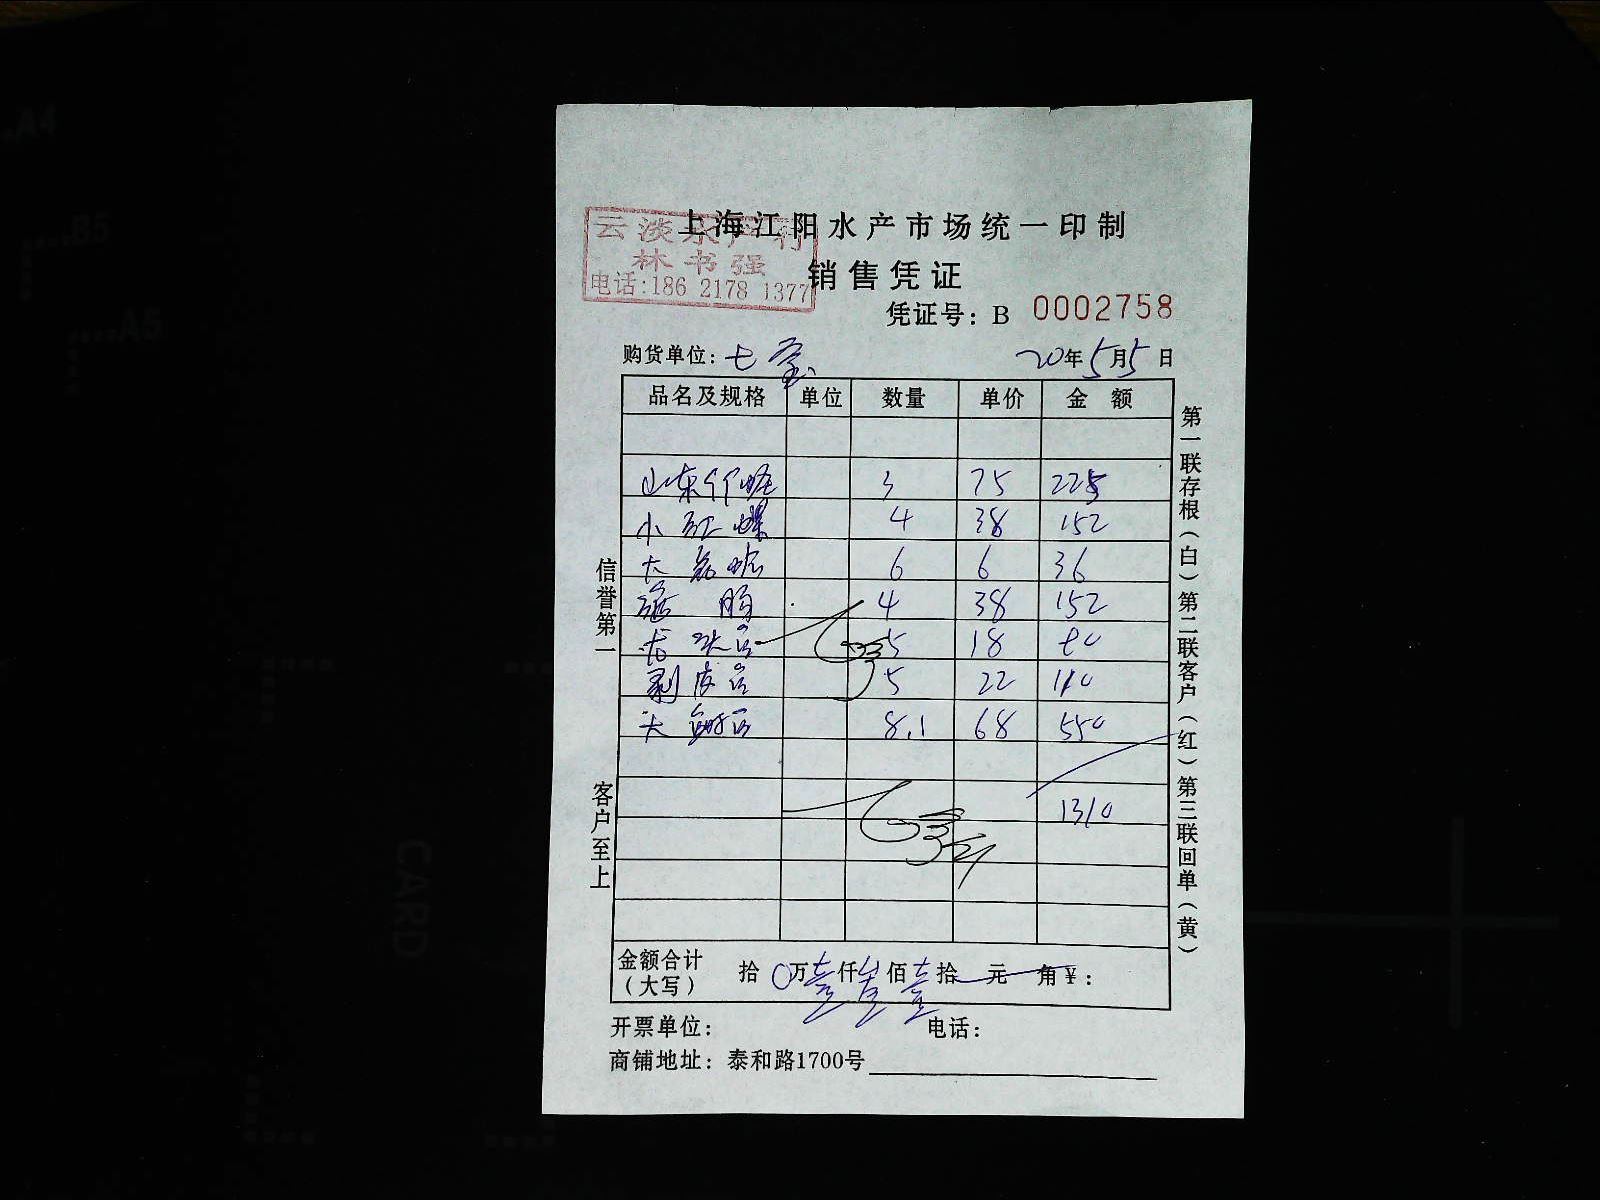 上海江阳水产市场统一印制
云淡水产行
林书强
电话:186 2178 1377
销售凭证
凭证号: B 0002758
购货单位: 七宝 20年5月5日
品名及规格 单位 数量 单价 金 额
山东 3 75 225
小红螺 4 38 152
大 6 6 36
4 38 152
5 18 90
剥皮 5 22 110
大 8.1 68 550
1310
金额合计
(大写) 拾 0万壹仟叁佰壹拾 元 角¥:
开票单位: 电话:
商铺地址: 泰和路1700号
信誉第一
客户至上
第一联存根(白)第二联客户(红)第三联回单(黄)
A4
B5
A5
CARD